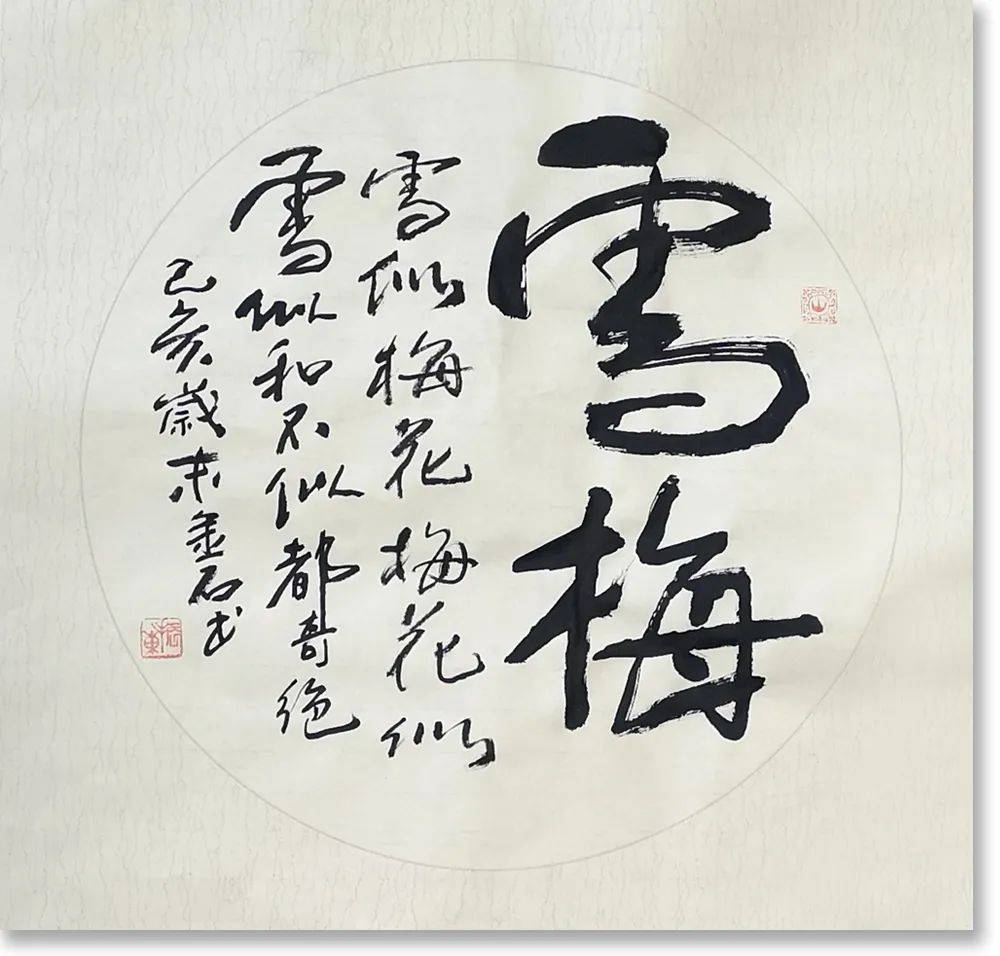 雪梅
雪似梅花梅花似
雪似和不似都奇绝
己亥歲末金石书